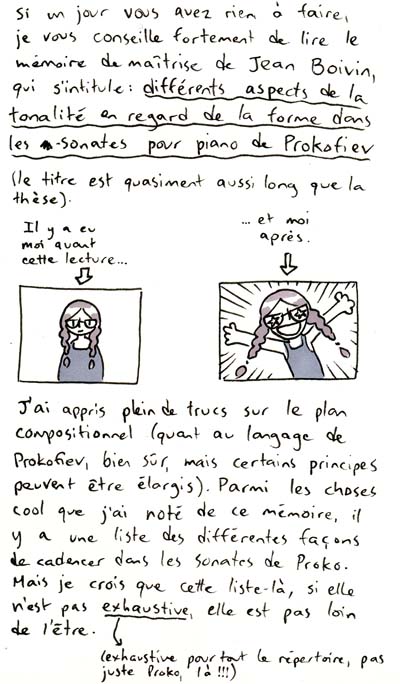 Si un jour vous avez rien à faire,
je vous conseille fortement de lire le
mémoire de maîtrise de Jean Boivin,
qui s'intitule: différents aspects de la
tonalité en regard de la forme dans
les sonates pour piano de Prokofiev
(le titre est quasiment aussi long que la
thèse).
Il y a eu
moi avant
cette lecture...
... et moi
après.
J'ai appris plein de trucs sur le plan
compositionnel (quant au langage de
Prokofiev, bien sûr, mais certains principes
peuvent être élargis). Parmi les choses
cool que j'ai noté de ce mémoire, il
y a une liste des différentes façons
de cadencer dans les sonates de Proko.
Mais je crois que cette liste-là, si elle
n'est pas exhaustive, elle est pas loin
de l'être.
(exhaustive pour tout le répertoire, pas
juste Proko, là!!!)